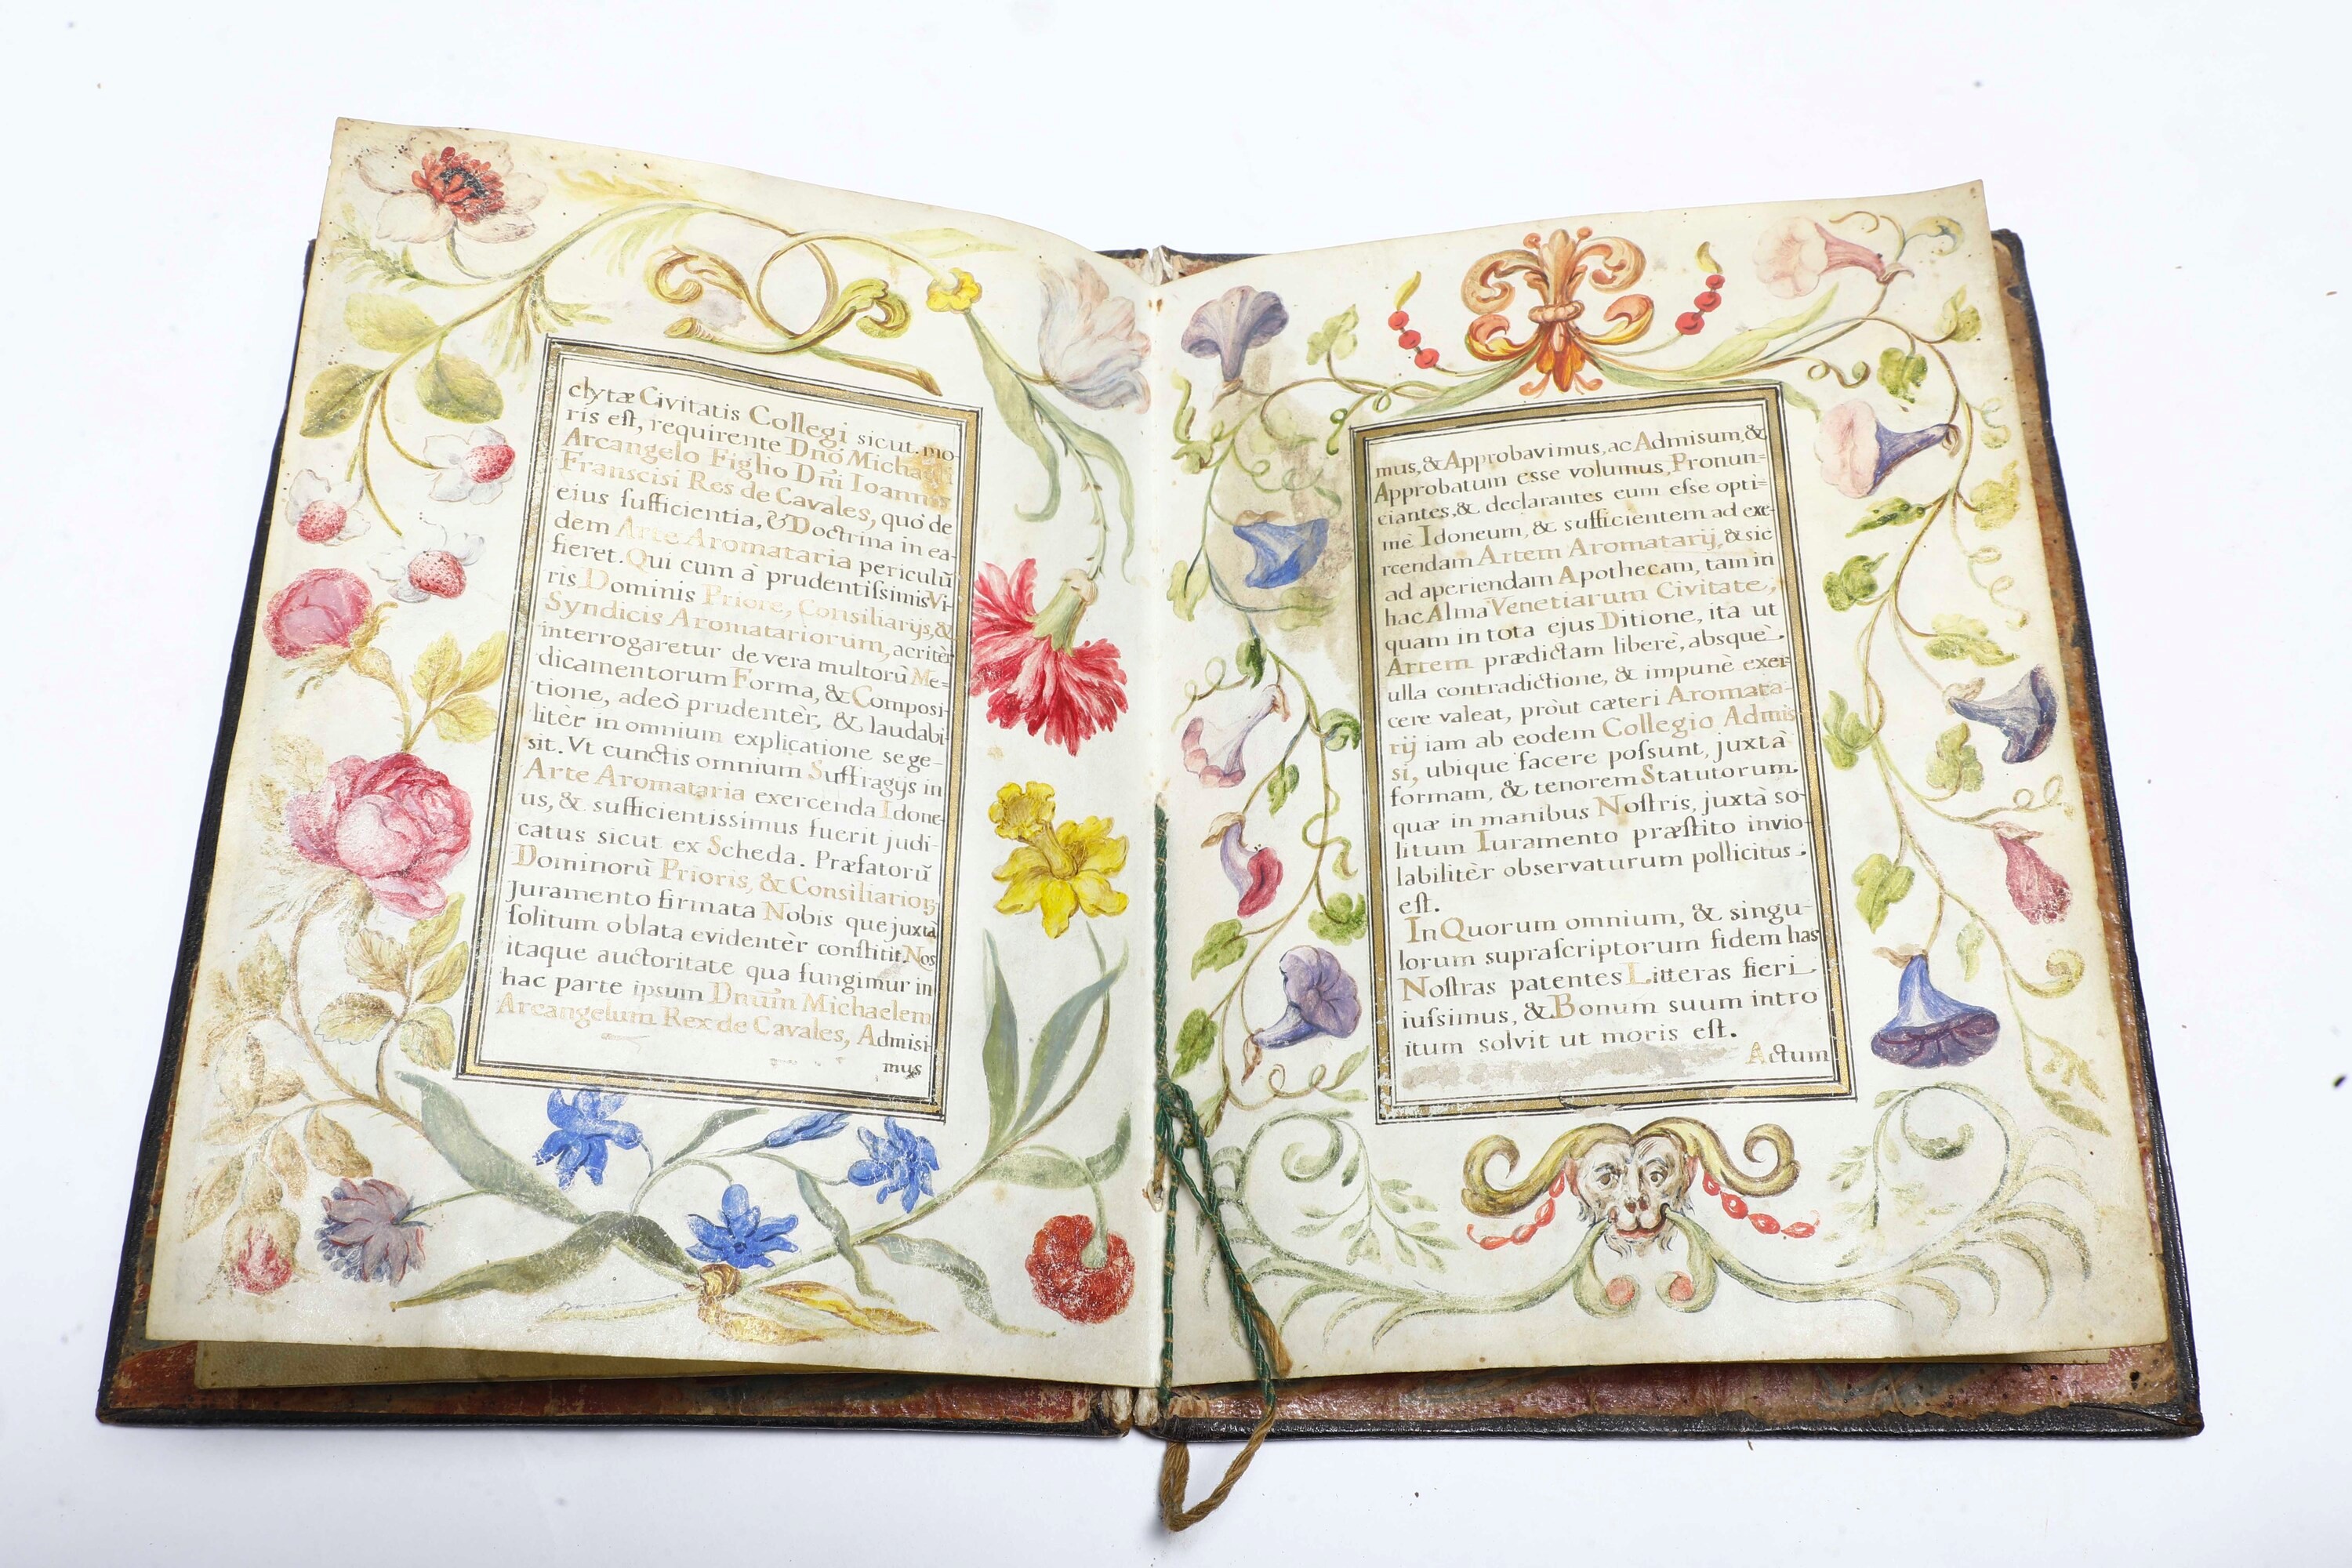 clytæ Civitatis Collegi sicut mo-
ris eſt, requirente Dnō Michaeli
Arcangelo Figlio Dm̄i Ioannis
Franscisi Res de Cavales, quò de
eius ſufficientia, & Doctrina in ea-
dem Arte Aromataria periculū
fieret. Qui cum à prudentiſsimis Vi-
ris Dominis Priore, Consiliarijs, &
Syndicis Aromatariorum, acritèr
interrogaretur de vera multorū Me-
dicamentorum Forma, & Composi-
tione, adeò prudentèr, & laudabi-
litèr in omnium explicatione se ge-
sit. Vt cunctis omnium Suffragijs in
Arte Aromataria exercenda Idone-
us, & sufficientissimus fuerit judi-
catus sicut ex Scheda. Præfatorū
Dominorū Prioris, & Consiliarior;
Juramento firmata Nobis que juxtà
ſolitum oblata evidentèr conſtitit. Nos
itaque auctoritate qua fungimur in
hac parte ipsum Dnūm Michaelem
Arcangelum Rex de Cavales, Admisi-
mus
mus, & Approbavimus, ac Admisum, &
Approbatum esse volumus, Pronun=
ciantes, & declarantes eum eſse opti=
mè Idoneum, & sufficientem ad exe-
rcendam Artem Aromatarij, & sic
ad aperiendam Apothecam, tam in
hac Alma Venetiarum Civitate,
quam in tota ejus Ditione, ita ut
Artem prædictam liberè, absquè
ulla contradictione, & impunè exer-
cere valeat, proùt cæteri Aromata-
rij iam ab eodem Collegio Admis
si, ubique facere poſsunt, juxtà
formam, & tenorem Statutorum.
quæ in manibus Noſtris, juxtà so-
litum Iuramento præſtito invio-
labilitèr observaturum pollicitus
eſt.
In Quorum omnium, & singu-
lorum supraſcriptorum fidem has
Noſtras patentes Litteras fieri
iuſsimus, & Bonum suum intro
itum solvit ut moris eſt.
Actum